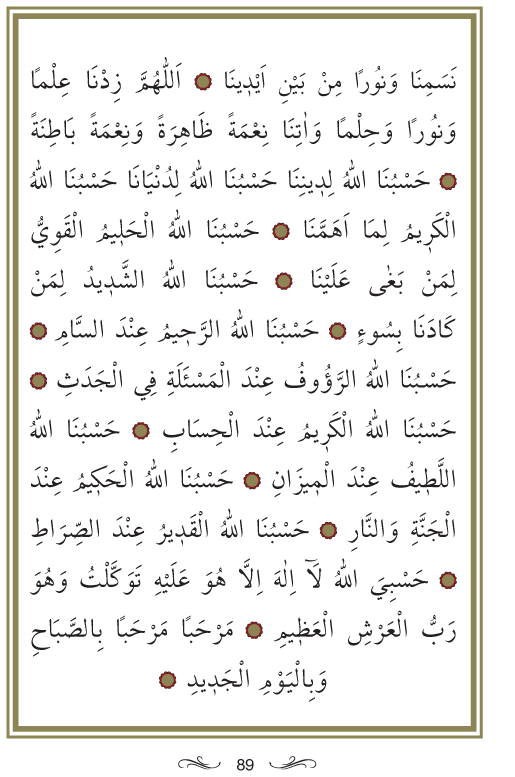 نَسَمِنَا وَنُورًا مِنْ بَيْنِ اَيْدِينَا ۞ اَللّٰهُمَّ زِدْنَا عِلْمًا
وَنُورًا وَحِلْمًا وَاٰتِنَا نِعْمَةً ظَاهِرَةً وَنِعْمَةً بَاطِنَةً
۞ حَسْبُنَا اللّٰهُ لِدِينِنَا حَسْبُنَا اللّٰهُ لِدُنْيَانَا حَسْبُنَا اللّٰهُ
الْكَرِيمُ لِمَا اَهَمَّنَا ۞ حَسْبُنَا اللّٰهُ الْحَلِيمُ الْقَوِيُّ
لِمَنْ بَغٰى عَلَيْنَا ۞ حَسْبُنَا اللّٰهُ الشَّدِيدُ لِمَنْ
كَادَنَا بِسُوءٍ ۞ حَسْبُنَا اللّٰهُ الرَّحِيمُ عِنْدَ السَّامِ ۞
حَسْبُنَا اللّٰهُ الرَّؤُوفُ عِنْدَ الْمَسْئَلَةِ فِي الْجَدَثِ ۞
حَسْبُنَا اللّٰهُ الْكَرِيمُ عِنْدَ الْحِسَابِ ۞ حَسْبُنَا اللّٰهُ
اللَّطِيفُ عِنْدَ الْمِيزَانِ ۞ حَسْبُنَا اللّٰهُ الْحَكِيمُ عِنْدَ
الْجَنَّةِ وَالنَّارِ ۞ حَسْبُنَا اللّٰهُ الْقَدِيرُ عِنْدَ الصِّرَاطِ
۞ حَسْبِيَ اللّٰهُ لَآ اِلٰهَ اِلَّا هُوَ عَلَيْهِ تَوَكَّلْتُ وَهُوَ
رَبُّ الْعَرْشِ الْعَظِيمِ ۞ مَرْحَبًا مَرْحَبًا بِالصَّبَاحِ
وَبِالْيَوْمِ الْجَدِيدِ ۞
89